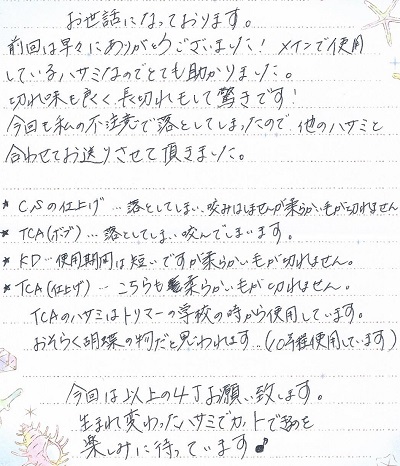 お世話になっております。
前回は早々にありがとうございました! メインで使用
しているハサミなのでとても助かりました。
切れ味も良く、長切れもして驚きです!
今回も私の不注意で落としてしまったので 他のハサミと
合わせてお送りさせて頂きました。
★ C/Sの仕上げ … 落としてしまい、咬みはしませんが柔らかい毛が切れません
★ TCA(ボブ) … 落としてしまい、咬んでしまいます。
★ KD … 使用期間は短いですが柔らかい毛が切れません。
★ TCA(仕上げ) … こちらも柔らかい毛が切れません。
TCAのハサミはトリマーの学校の時から使用しています。
おそらく胡蝶の物だと思われます…(10年程使用しています)
今回は以上の4丁お願い致します。
生まれ変わったハサミでカットできるのを
楽しみに待っています♪